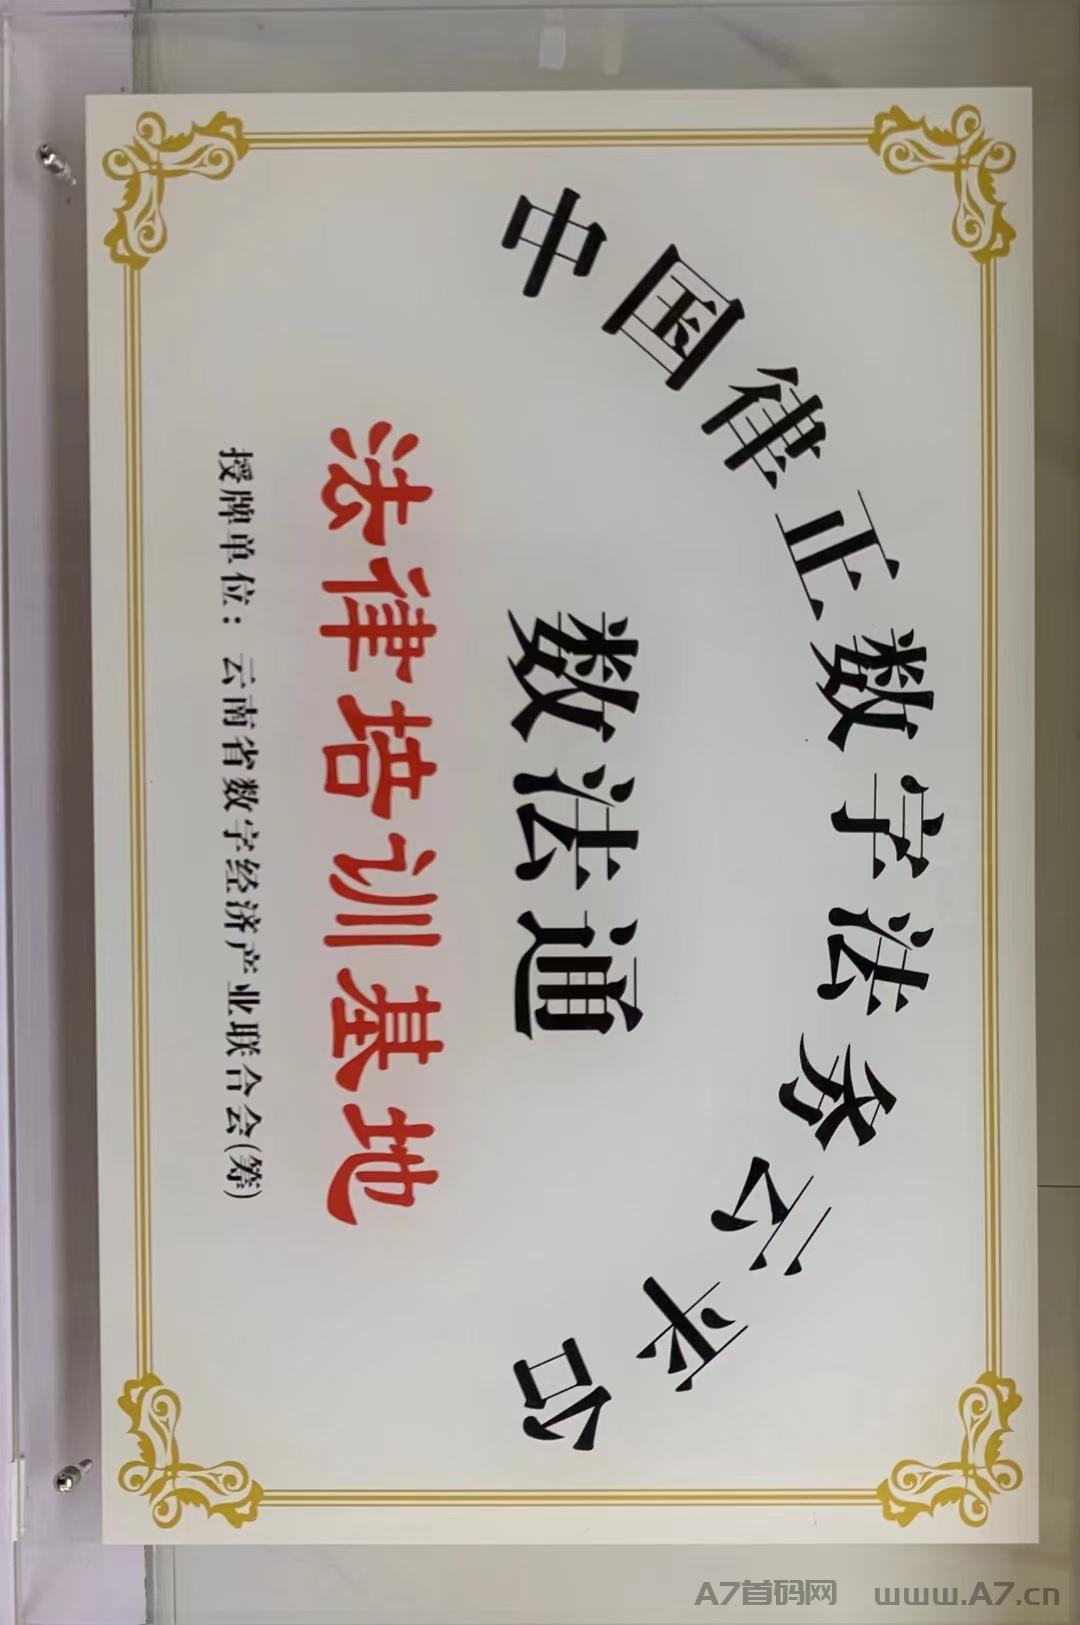 中国律正数字法务云平台
数法通
法律培训基地
授牌单位：云南省数字经济产业联合会(筹)
A7首码网 www.A7.cn